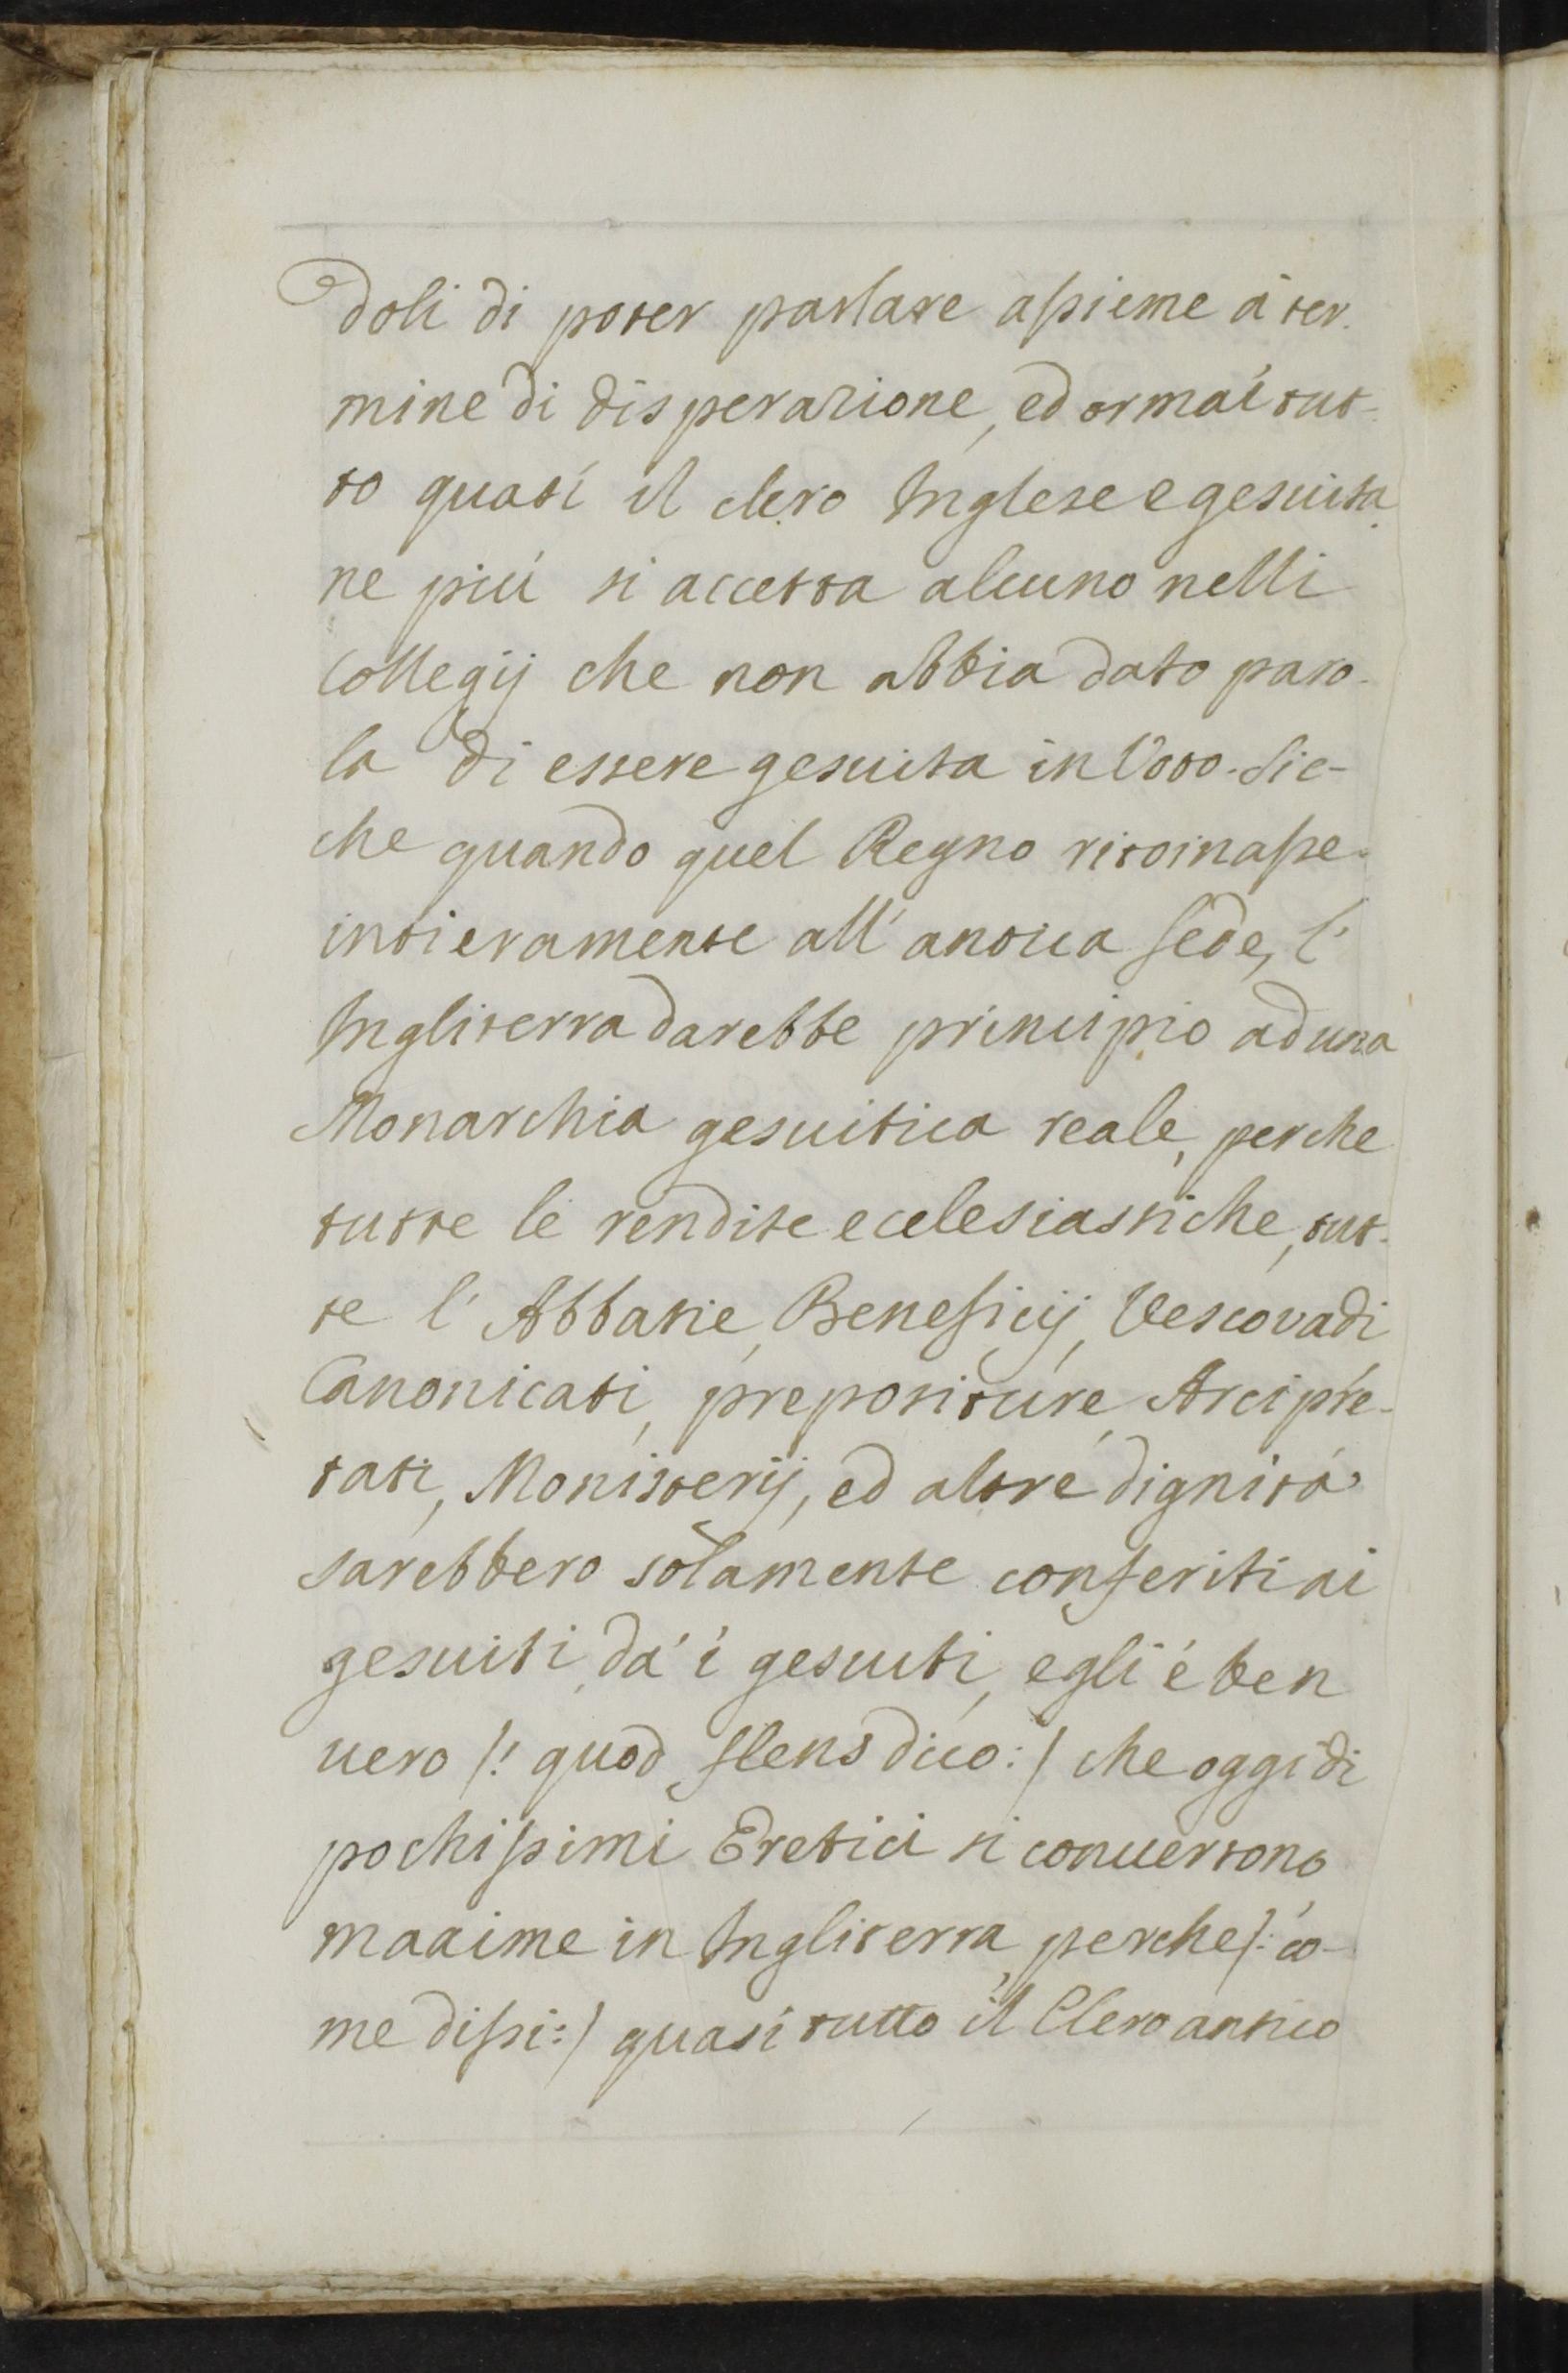 doli di poter parlare assieme á ter.
mine di disperazione, ed ormai tut-
to quasi il clero Inglese e gesuita
ne piú si accetta alcuno nelli
Collegij che non abbia dato paro-
la di essere gesuita in Voto. Sic-
che quando quel Regno ritoinasse
intieramente all' antica sede, l'
Inghliterra darebbe principio ad una
Monarchia gesuitica reale, perche
tutte le rendite ecelesiastiche, tut-
te l' Abbatie, Beneficij, Vescovadi
Canonicati, prepositure, Arcipre-
tati, Monisterij, ed altre dignitá
sarebbero solamente conferiti ai
gesuiti, dá i gesuiti, egli é ben
uero /: quod flens dico :/ che oggi di
pochissimi Eretici si conuertono
maxime in Ingliterra, perche /: co-
me dissi :/ quasi tutto il Clero antico